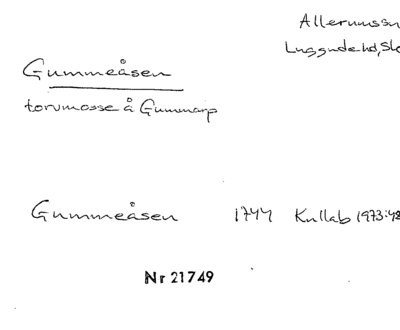 Allerumssn
Luggude hd, Sk
Gummeåsen
torvmosse å Gummarp
Gummeåsen 1744 Kullab 1973:48
Nr 21749